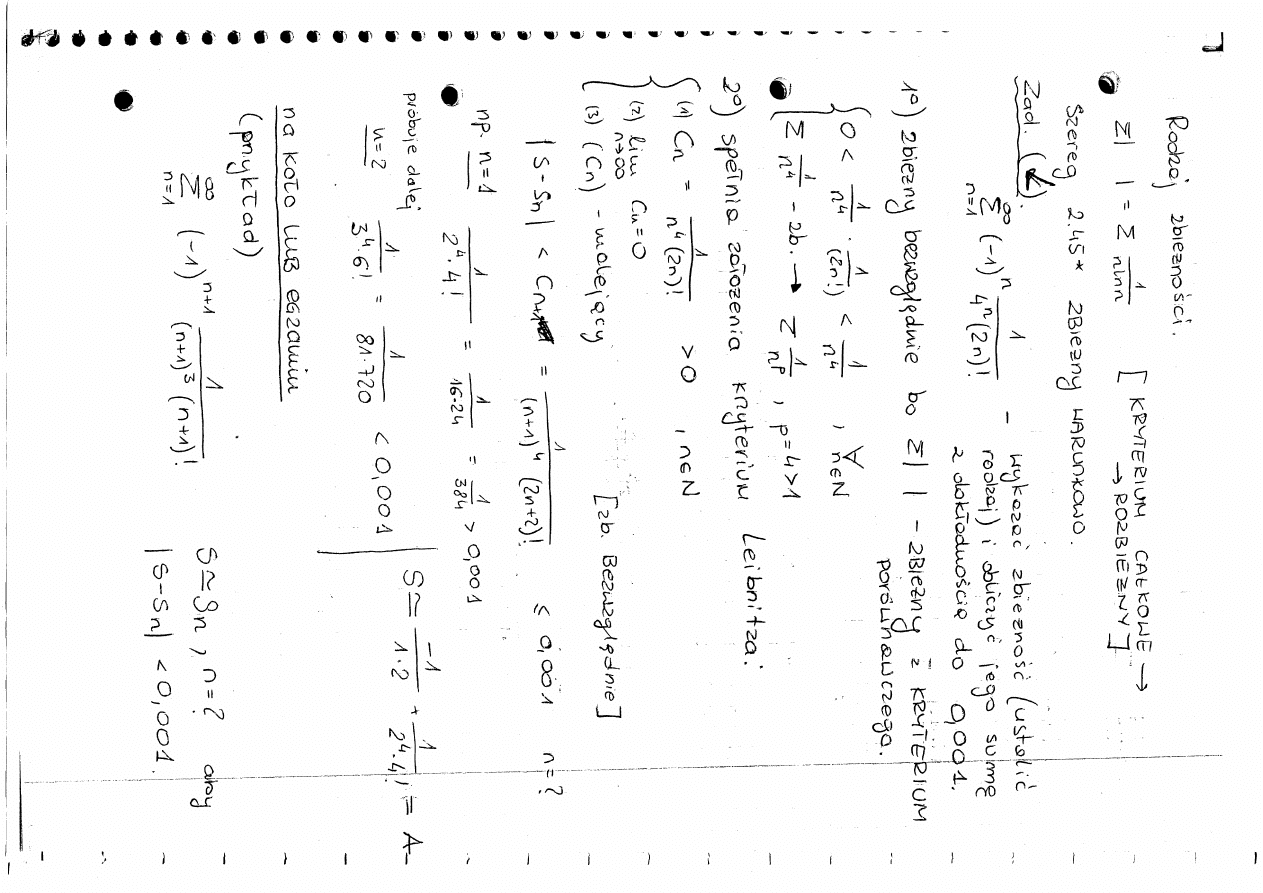 Rodzaj zbieżności.
Σ| | = Σ 1/(n ln n) [KRYTERIUM CAŁKOWE →
→ ROZBIEŻNY]
Szereg 2.45* ZBIEŻNY WARUNKOWO.
Zad. (↙).
∞ Σ n=1 (-1)^n 1/(4^n (2n)!) - wykazać zbieżność (ustalić
rodzaj) i obliczyć jego sumę
z dokładnością do 0,001.
1°) zbieżny bezwzględnie bo Σ| | - zbieżny z KRYTERIUM
porównawczego.
{ 0 < 1/n^4 · 1/(2n!) < 1/n^4 , ∀ n∈N
{ Σ 1/n^4 - zb. → Σ 1/n^p , p=4>1
2°) spełnia założenia kryterium Leibnitza:
{ (1) Cn = 1/(n^4 (2n)!) > 0 , n∈N
(2) lim n→∞ Cn = 0
(3) (Cn) - malejący [zb. Bezwzględnie]
|S - Sn| < Cn+1 = 1/((n+1)^4 (2n+2)!) ≤ 0,001 n=?
np. n=1 1/(2^4·4!) = 1/(16·24) = 1/384 > 0,001
próbuje dalej
n=2 1/(3^4·6!) = 1/(81·720) < 0,001 | S ≃ -1/(1·2) + 1/(2^4·4!) = A
na koło LUB egzamin
(przykład)
∞ Σ n=1 (-1)^(n+1) 1/((n+1)^3 (n+1)!) S ≃ Sn , n=? aby
|S-Sn| < 0,001.